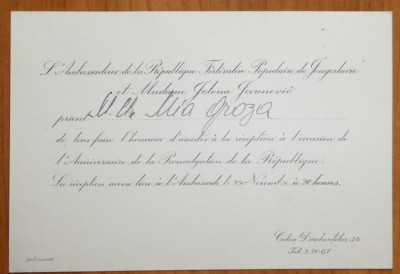 L'Ambassadeur de la République Fédérative Populaire de Yougoslavie
et Madame Jelena Jovanović
prient M. Mia Groza
de leur faire l'honneur d'assister à la réception à l'occasion de
l'Anniversaire de la Promulgation de la République.
La réception aura lieu à l'Ambassade le 29 Novembre à 20 heures.
Calea Dorobanților, 34
Tel. 2.20.61